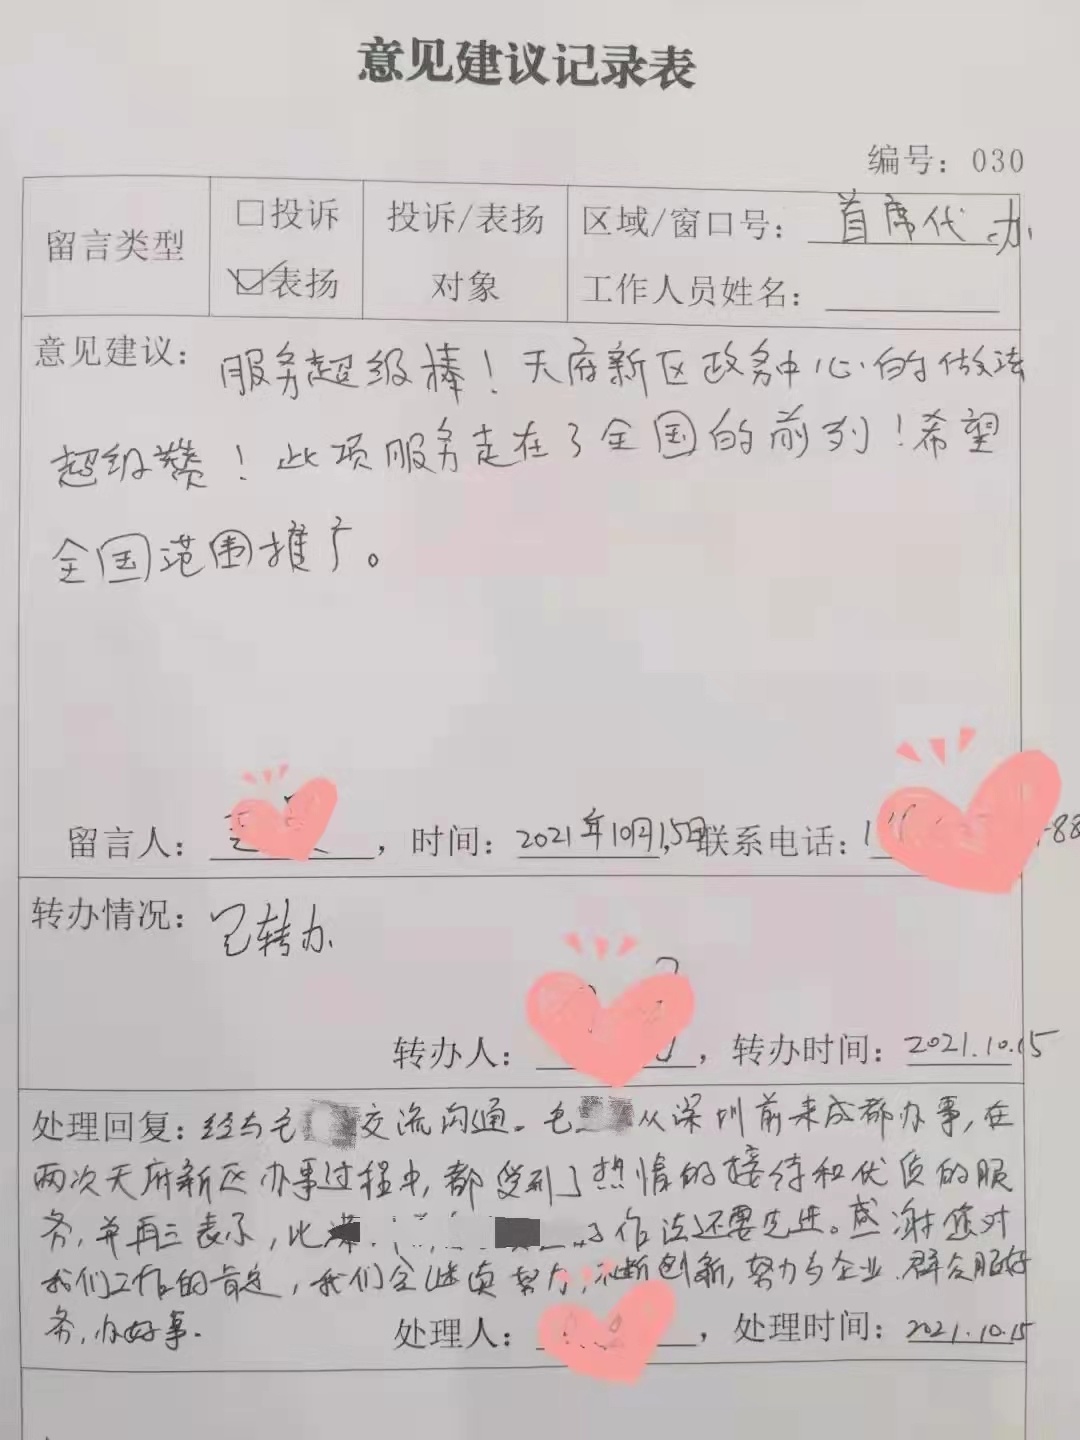 意见建议记录表
编号：030
留言类型
□投诉
☑表扬
投诉/表扬
对象
区域/窗口号：首席代办
工作人员姓名：
意见建议：服务超级棒！天府新区政务中心的做法
超级赞！此项服务走在了全国的前列！希望
全国范围推广。
留言人：，时间：2021年10月15日，联系电话：1 88
转办情况：已转办
转办人：，转办时间：2021.10.15
处理回复：经与毛 交流沟通。毛 从深圳前来成都办事，在
两次天府新区办事过程中，都受到了热情的接待和优质的服
务，并再三表示，比深 作法还要先进。感谢您对
我们工作的肯定，我们会继续努力，不断创新，努力为企业、群众服好
务，办好事。
处理人：，处理时间：2021.10.15